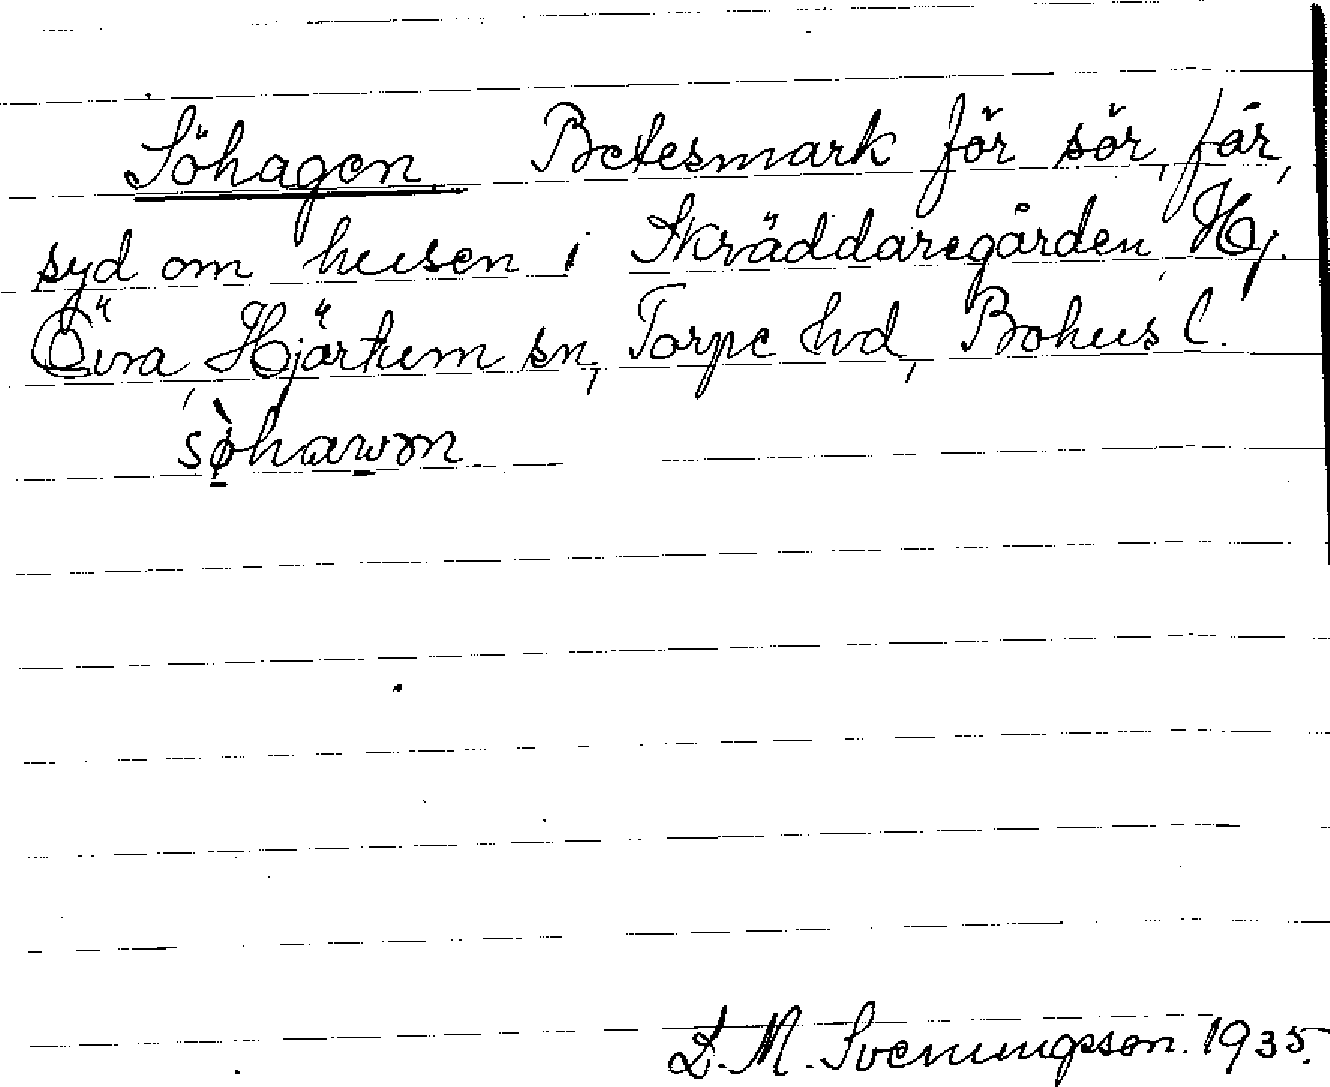 Söhagen Betesmark för sör, får,
syd om husen i Skräddaregården, Hj.
Övra, Hjärtum sn, Torpe hd, Bohus l.
sø̀hawən
D. M. Svenungsson. 1935.